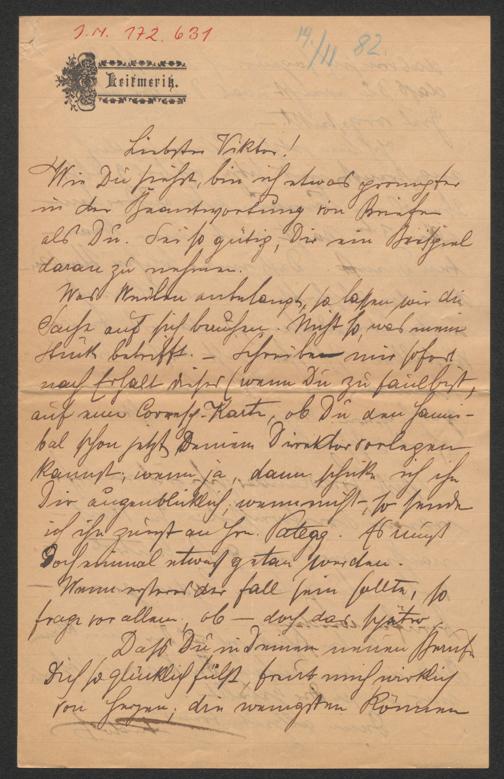 J.N. 172.631
14./11 82.
Leitmeritz.
Liebster Viktor!
Wie Du siehst, bin ich etwas prompter
in der Beantwortung von Briefen
als Du. Sei so gütig, Dir ein Beispiel
daran zu nehmen.
Was Weilen anbelangt, so lassen wir die
Sache auf sich beruhen. Nicht so, was mein
Stück betrifft. – Schreibe mir sofort
nach Erhalt dieses (wenn Du zu faul bist,
auf einer Corresp.-Karte, ob Du den Hanni-
bal schon jetzt Deinem Direktor vorlegen
kannst; wenn ja, dann schicke ich ihn
Dir augenblicklich, wenn nicht – so sende
ich ihn zuerst an Hrn. . Es muß
doch einmal etwas getan werden.
Wenn ersteres der Fall sein sollte, so
frage vor allem, ob – doch das später.
Daß Du in Deinem neuen Berufe
Dich so glücklich fühlst, freut mich wirklich
von Herzen; die wenigsten können